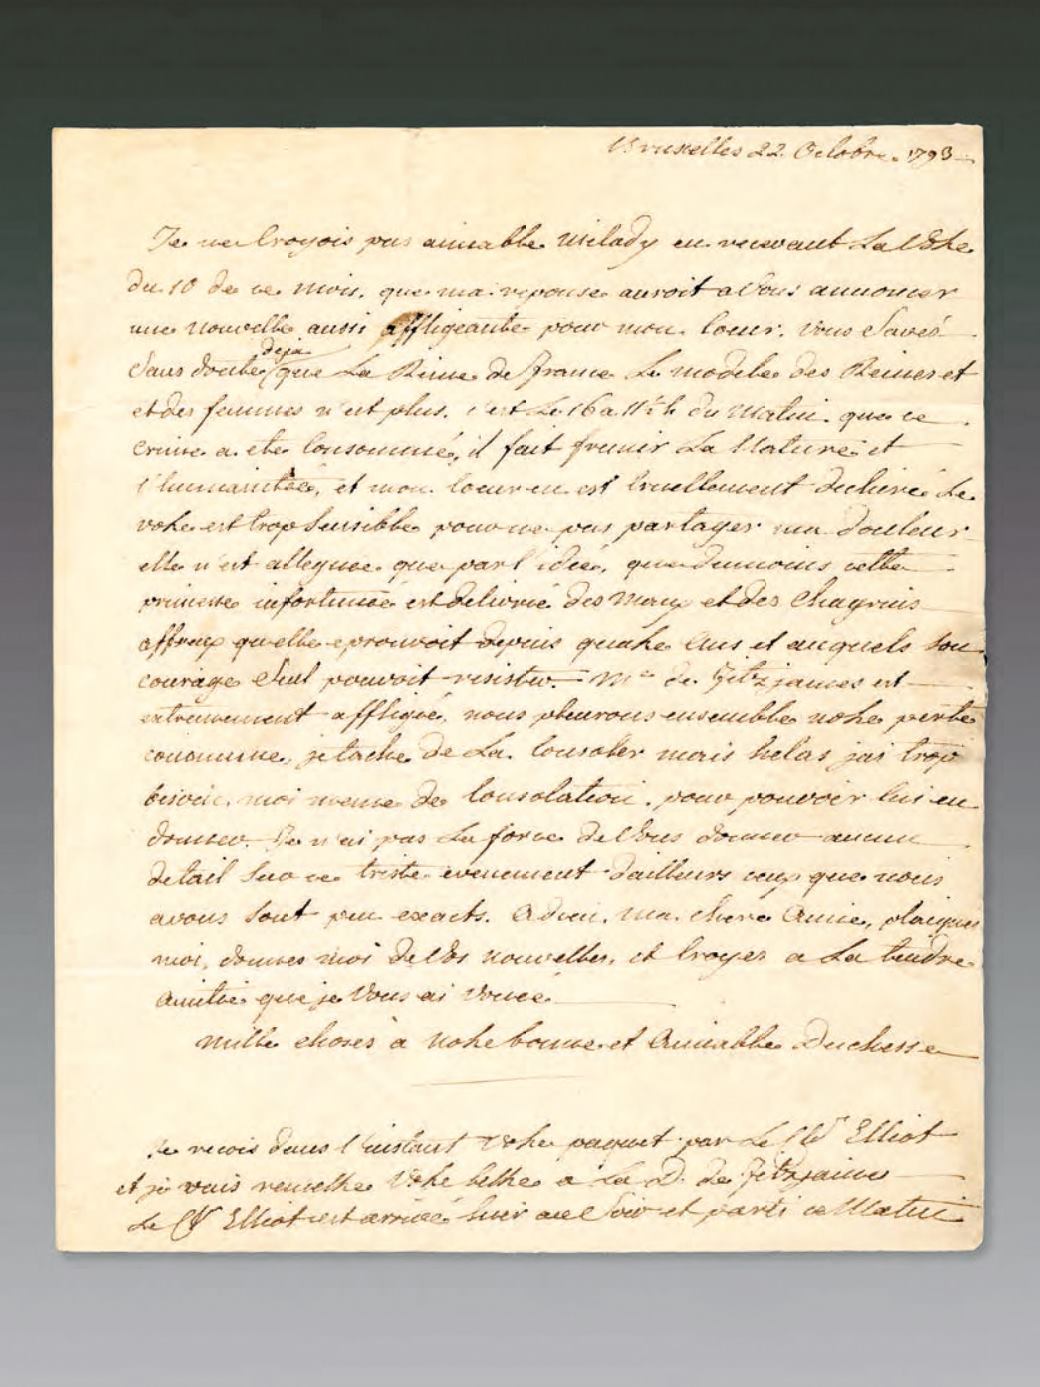 Bruxelles 22 Octobre. 1793
Je ne croyois pas aimable Milady en recevant La Votre
du 10 de ce mois, que ma reponse auroit a Vous annoncer
une nouvelle aussi affligeante pour mon Coeur. Vous Savés
Sans doute deja que La Reine de france Le modele des Reines et
et des femmes n'est plus. c'est Le 16 a 11h½ du Matin que ce
crime a eté Consommé, il fait fremir La Nature et
l'humanitée, et mon Coeur en est Cruellement dechiré Le
votre est trop Sensible pour ne pas partager ma douleur
elle n'est allegnee que par l'idée, que dumoins cette
princesse infortunée est delivrée des Maux et des Chagrins
affreux qu'elle eprouvoit depuis quatre ans et auquels Son
courage Seul pouvoit resister. Me de Fitzjames est
extremement affligée, nous pleurons ensemble notre perte
commune, je tache de La Consoler mais helas jai trop
besoin, moi meme de Consolation, pour pouvoir lui en
donner. Je n'ai pas La force de Vous donner aucun
detail Sur ce triste evenement d'ailleurs ceux que nous
avons Sont peu exacts. Adieu, Ma chere Amie, plaignes
moi, donnes moi de Vos nouvelles, et Croyes a La tendre
Amitié que je Vous ai Vouée
Mille choses à Notre bonne et Aimable Duchesse
Je recois dans l'instant Votre paquet par Le Elliot
et je vais remettre Votre lettre a La D. de Fitzjames
Le Elliot est arrivé hier au Soir et parti ce Matin